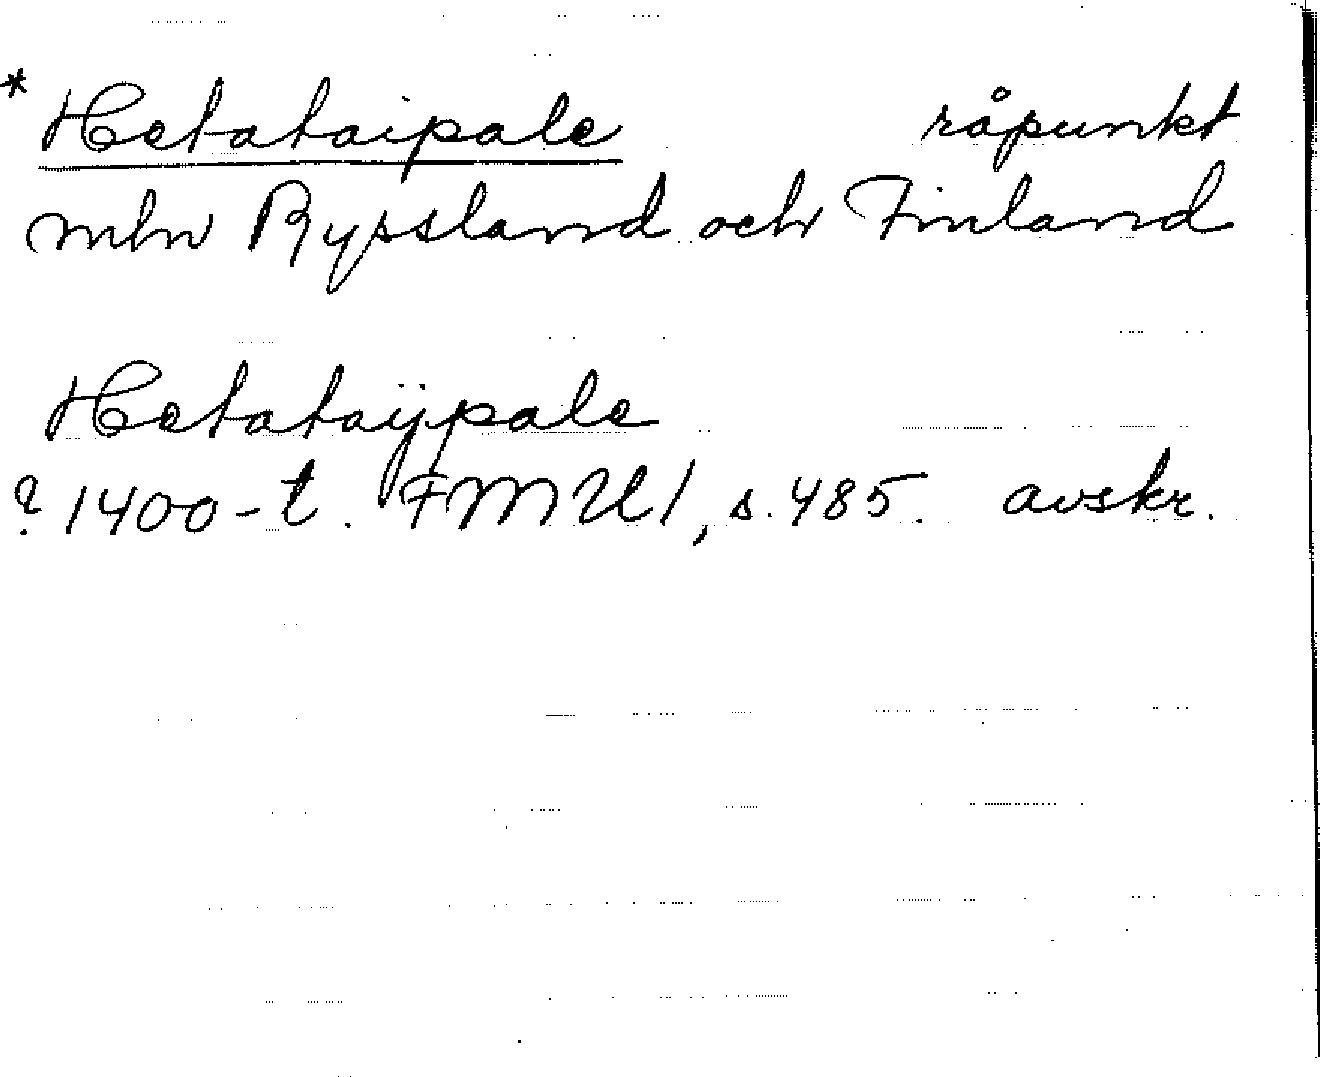 * Hetataipale råpunkt
mln Ryssland och Finland
Hetataÿpale
? 1400-t. FMU 1, s. 485. avskr.